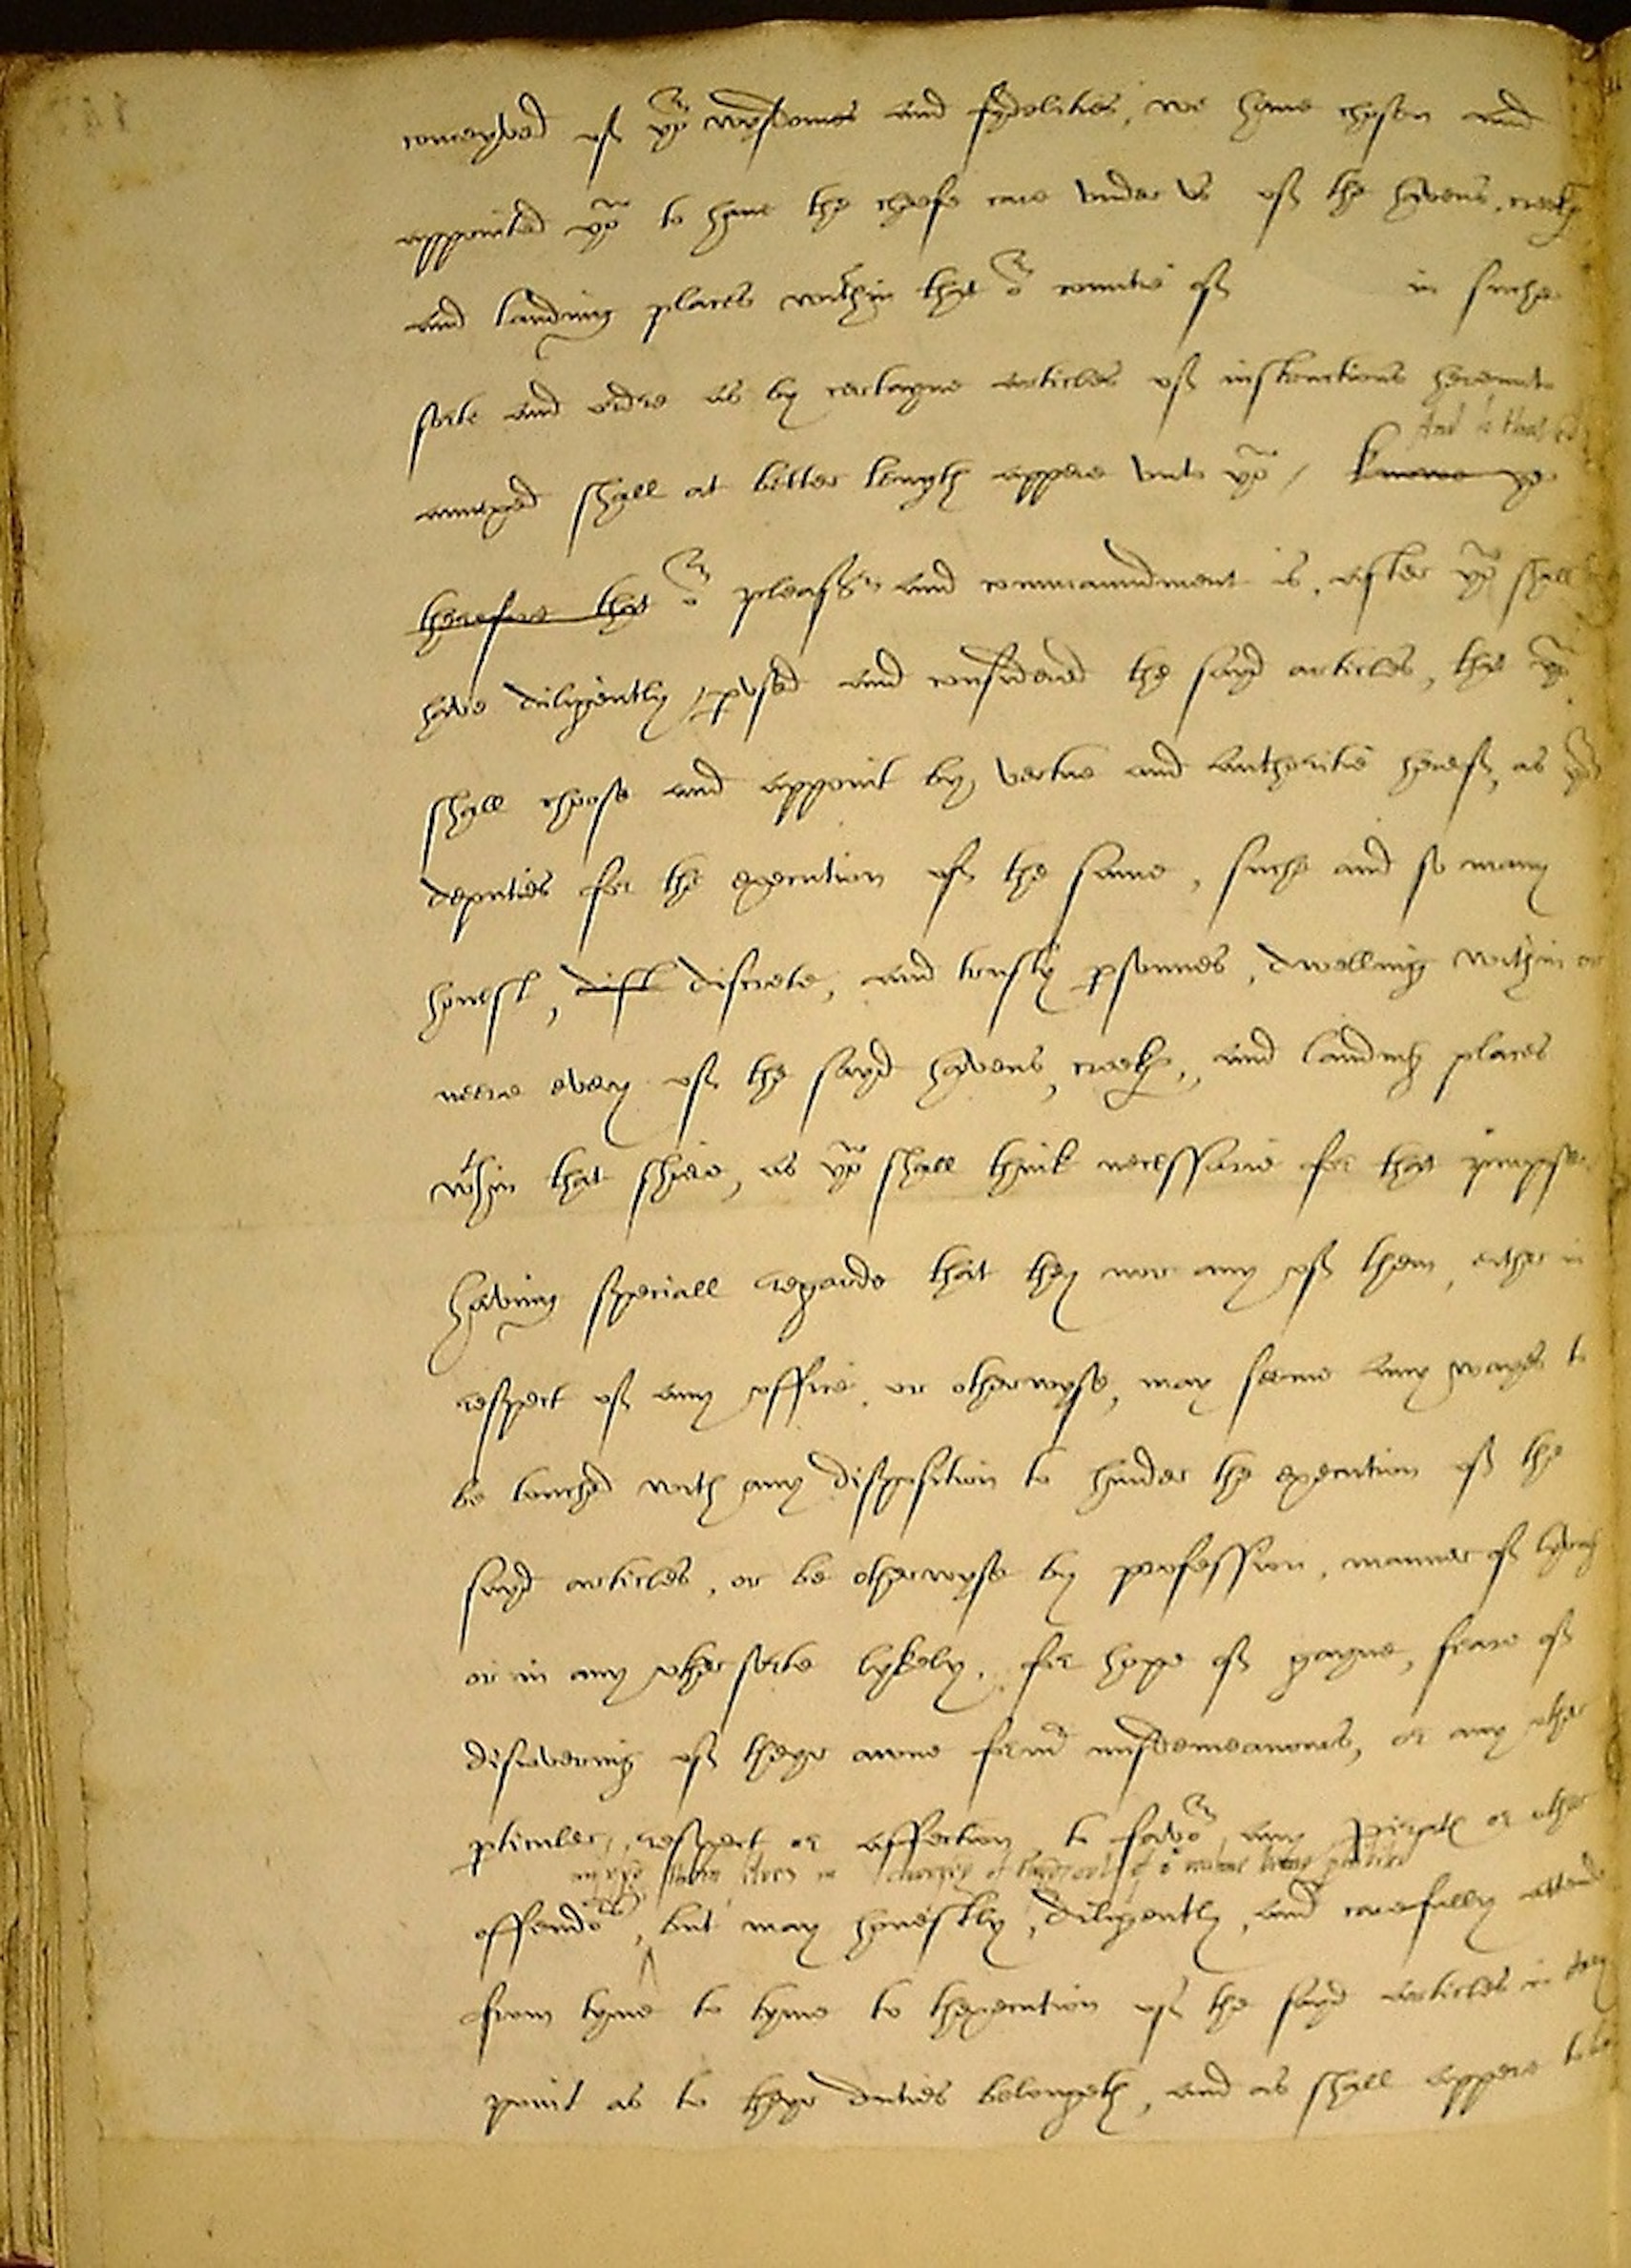 conceyved of yor wysdomes and fydelities, we have chosen and
appointed yo to have the cheefe care under us of the havens, creeks
and landing places within that or countie of in suche
sorte and ordre as by certayne articles of instructions hereunto
And
annexed shall at better length appere unto yo / knowe ye
therefore that or pleassr and commaundment is, after yo shall
have diligently pused and considered the sayd articles, that yo
shall choose and appoint by vertue and authoritie hereof, as yor
deputies for the execution of the same, suche and so many
honest, disk discrete, and trusty psonnes, dwelling within or
neere every of the sayd havens, creeks, and landing places
wthin that shiere, as yo shall think necessarie for that purpose
having speciall regarde that they nor any of them, ether in
respect of any office, or otherwyse, may seeme any wayes to
be touched with any disposition to hinder the execution of the
sayd articles, or be otherwyse by profession, manner of lyving
or in any other sorte lykely, for hope of gayne, feare of
discovering of theyr awne form misdemeanors, or any other
pticuler, respect or affection to favor any pirats or other
offendors, but may honestly, diligently, and carefully attende
from tyme to tyme to thexecution of the sayd articles in every
point as to theyr duties belongeth, and as shall appere to be